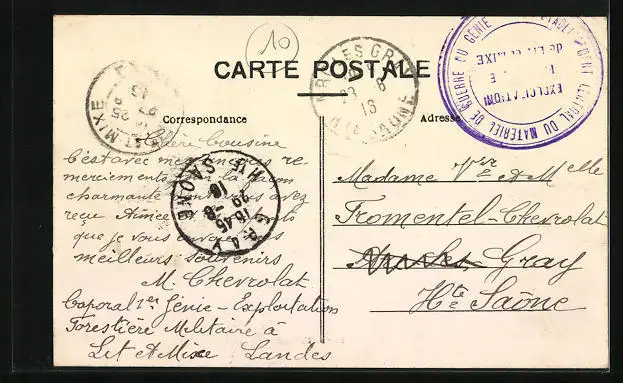 10
CARTE POSTALE
Correspondance
Adresse
ÉTABLISSEMENT CENTRAL DU MATÉRIEL DE GUERRE DU GÉNIE
EXPLOITATION
de Lit et MIXE
LIT ET MIXE
25
GRAY
Hte SAONE
16-45
29 -8
16
Chère Cousine
C'est avec mes sincères re-
merciements de la façon
charmante dont vous avez
reçu Aimée
que je vous envoie
meilleurs souvenirs
M. Chevrolat
Caporal 1er Génie - Exploitation
Forestière Militaire à
Lit et Mixe Landes
Madame Vve et Melle
Fromentel-Chevrolat
Gray
Hte Saône